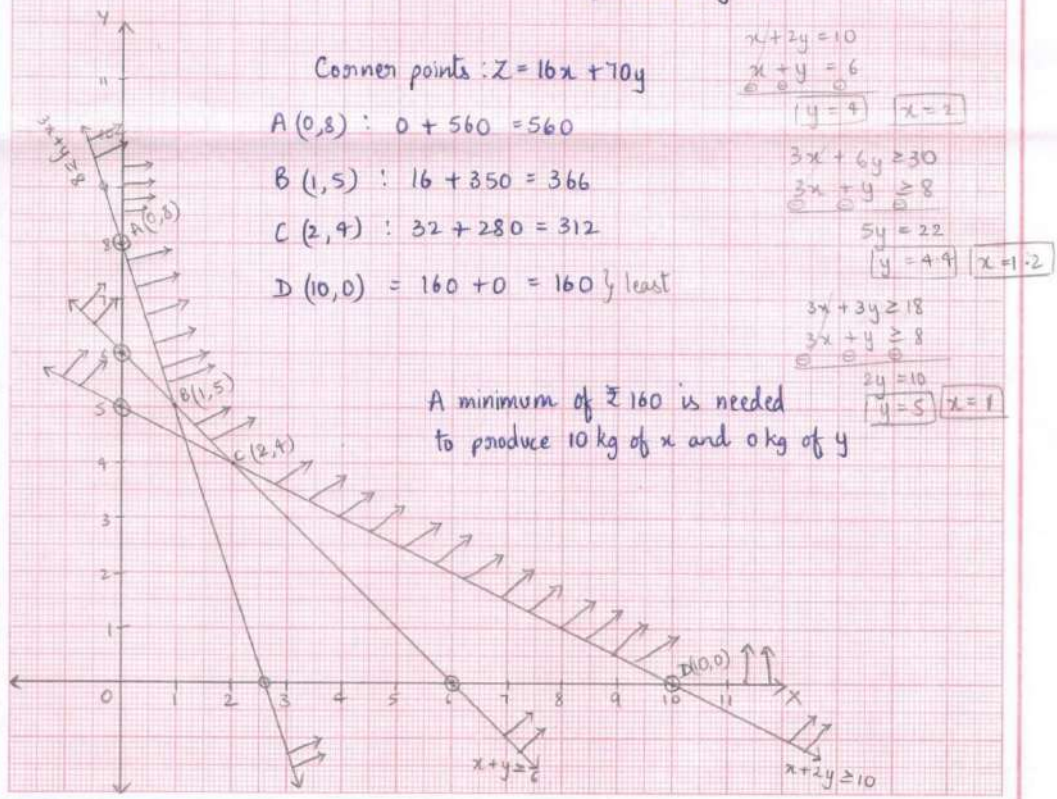 Y
Corner points : Z = 16x + 70y
A (0,8) : 0 + 560 = 560
B (1,5) : 16 + 350 = 366
C (2,4) : 32 + 280 = 312
D (10,0) = 160 + 0 = 160 } least
A minimum of ₹ 160 is needed
to produce 10 kg of x and 0 kg of y
x + 2y = 10
x + y = 6
y = 4 x = 2
3x + 6y ≥ 30
3x + y ≥ 8
5y = 22
y = 4.4 x = 1.2
3x + 3y ≥ 18
3x + y ≥ 8
2y = 10
y = 5 x = 1
3x + y ≥ 8
A(0,8)
B(1,5)
C(2,4)
D(10,0)
11
8
7
6
5
4
3
2
1
0 1 2 3 4 5 6 7 8 9 10 11 X
x + y ≥ 6
x + 2y ≥ 10